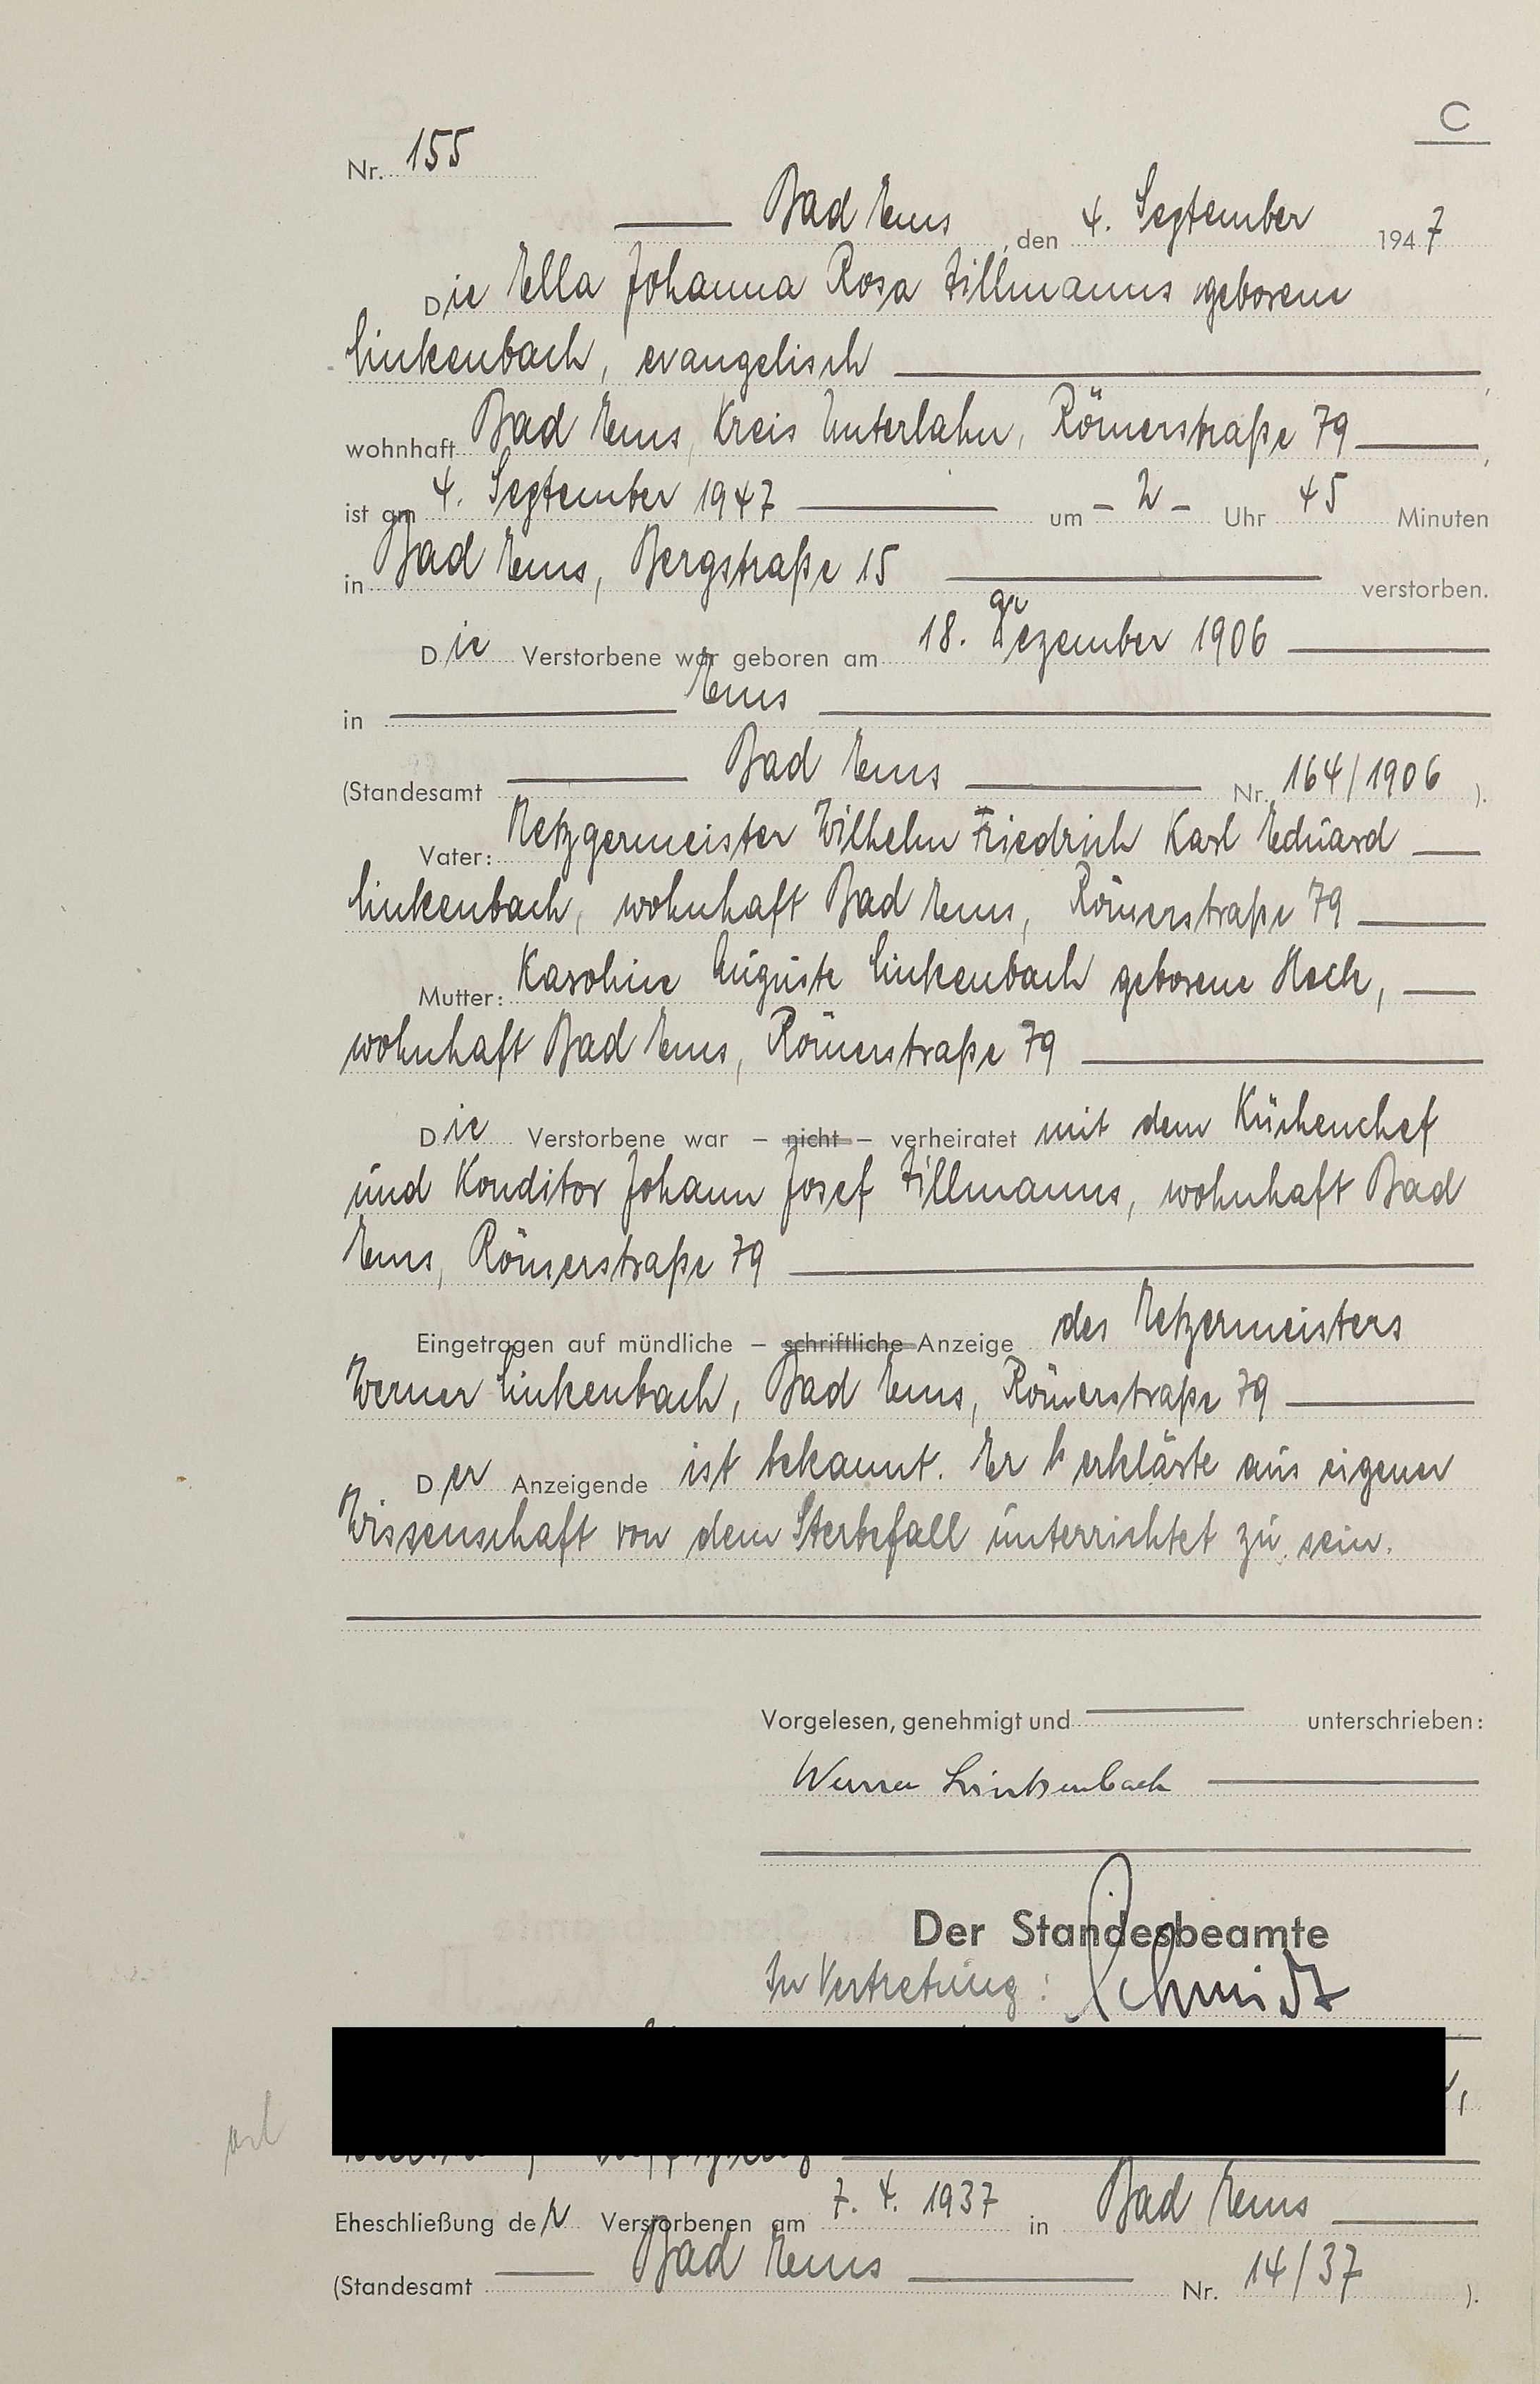 C
Nr. 155
Bad Ems, den 4. September 1947
Die Ella Johanna Rosa Tillmanns geborene
Linkenbach, evangelisch
wohnhaft Bad Ems, Kreis Unterlahn, Römerstraße 79,
ist am 4. September 1947 um - 2 - Uhr 45 Minuten
in Bad Ems, Bergstraße 15 verstorben.
Die Verstorbene war geboren am 18. Dezember 1906
in Ems
(Standesamt Bad Ems Nr. 164/1906 ).
Vater: Metzgermeister Wilhelm Friedrich Karl Eduard
Linkenbach, wohnhaft Bad Ems, Römerstraße 79
Mutter: Karoline Auguste Linkenbach geborene Heck,
wohnhaft Bad Ems, Römerstraße 79
Die Verstorbene war – nicht – verheiratet mit dem Küchenchef
und Konditor Johann Josef Tillmanns, wohnhaft Bad
Ems, Römerstraße 79
Eingetragen auf mündliche – schriftliche Anzeige des Metzermeisters
Werner Linkenbach, Bad Ems, Römerstraße 79
Der Anzeigende ist bekannt. Er erklärte aus eigener
Wissenschaft von dem Sterbefall unterrichtet zu sein.
Vorgelesen, genehmigt und unterschrieben:
Werner Linkenbach
Der Standesbeamte
In Vertretung: Schmidt
Eheschließung der Verstorbenen am 7. 4. 1937 in Bad Ems
(Standesamt Bad Ems Nr. 14/37 ).